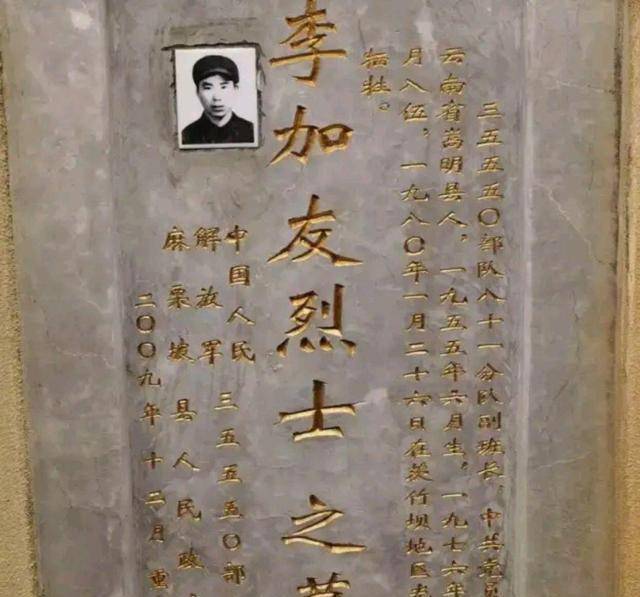 三五五五〇部队八十一分队副班长,中共党员
云南省嵩明县人,一九五五年六月生,一九七六年
月入伍,一九八〇年一月二十六日在茨竹坝地区
牺牲。
李加友烈士之
中国人民
解放军
三五五五〇部
麻栗坡县人民政
二〇〇九年十二月重